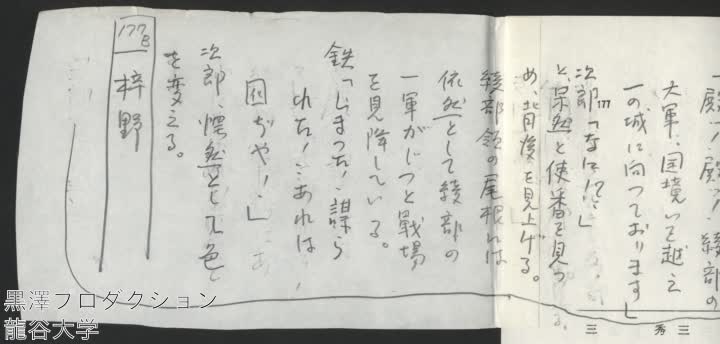 殿!殿!綾部の
大軍、国境いを越え
一の城に向っております」
次郎「なに!?」
と、呆然と使番を見つ
め、背後を見上げる。
綾部領の尾根には
依然として綾部の
一軍がじっと戦場
を見降している。
鉄「しまった!謀ら
れた!あれは
囮ぢゃ!」
次郎、愕然として色
を変える。
177B
梓野
三 秀 三
黒澤プロダクション
龍谷大学